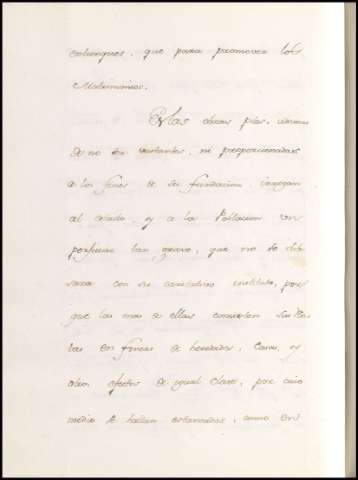 estanques, que para promover los
Matrimonios.
Estas obras pias, ademas
de no ser bastantes, ni proporcionadas
a los fines de su fundacion, cargan
al estado, y a la Poblacion un
perjuicio tan grave, que no se
con su caritativo instituto, por
que las mas de ellas consisten sus
tas en fincas de heredades, Casas, y
otros efectos de igual clase, por cuio
medio se hallan estancadas, como en